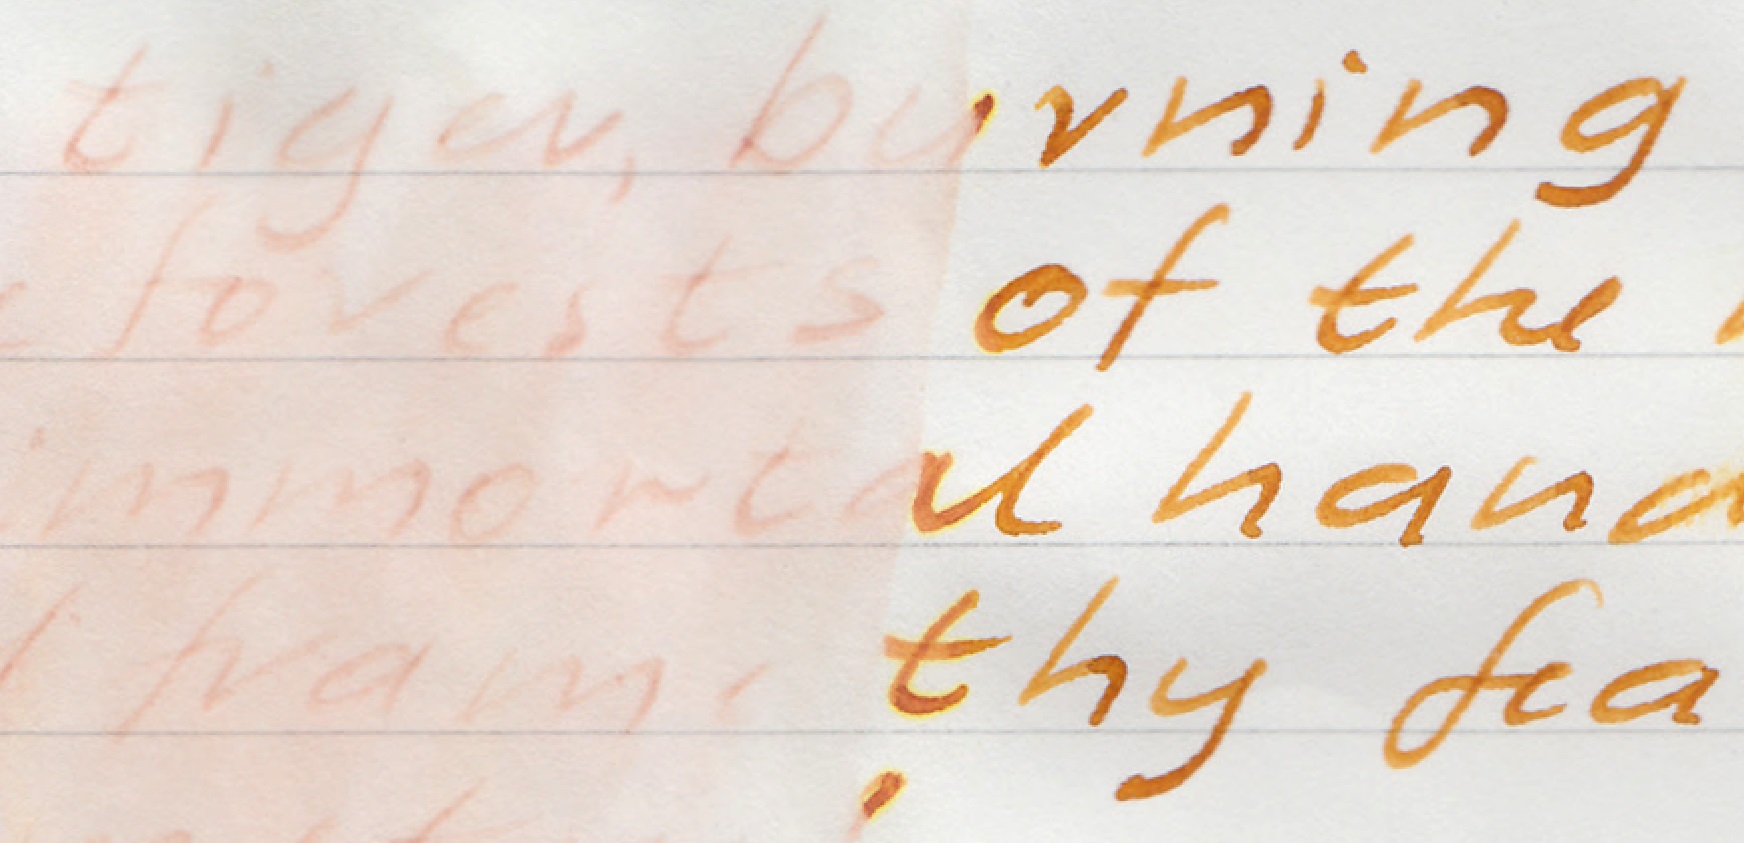 tiger, burning
forests of the
immortal hand
frame thy fea